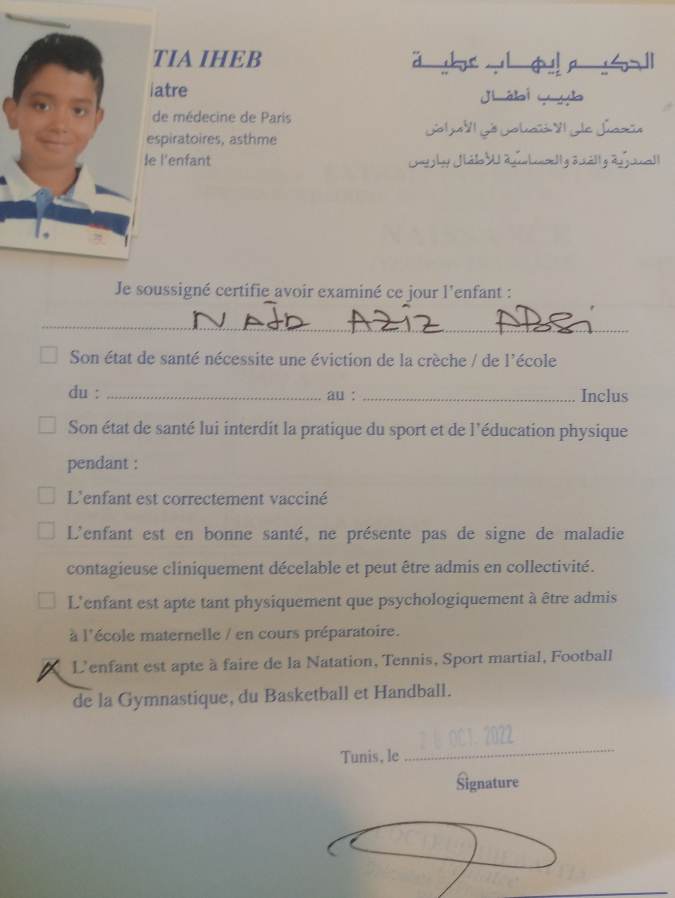 TIA IHEB
iatre
de médecine de Paris
espiratoires, asthme
de l'enfant
الحكيم إيهاب عطية
طبيب أطفال
متحصل على الاختصاص في الأمراض
الصدرية والغدة والحساسية للأطفال بباريس
Je soussigné certifie avoir examiné ce jour l'enfant :
NAJD AZIZ ABSi
Son état de santé nécessite une éviction de la crèche / de l'école
du : au : Inclus
Son état de santé lui interdit la pratique du sport et de l'éducation physique
pendant :
L'enfant est correctement vacciné
L'enfant est en bonne santé, ne présente pas de signe de maladie
contagieuse cliniquement décelable et peut être admis en collectivité.
L'enfant est apte tant physiquement que psychologiquement à être admis
à l'école maternelle / en cours préparatoire.
L'enfant est apte à faire de la Natation, Tennis, Sport martial, Football
de la Gymnastique, du Basketball et Handball.
OCT. 2022
Tunis, le
Signature